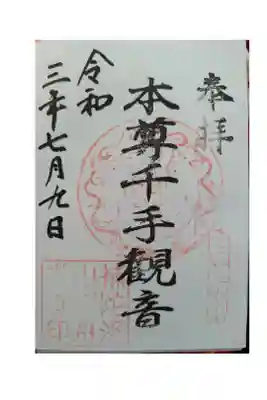 奉拝
本尊千手觀音
令和
三年七月九日